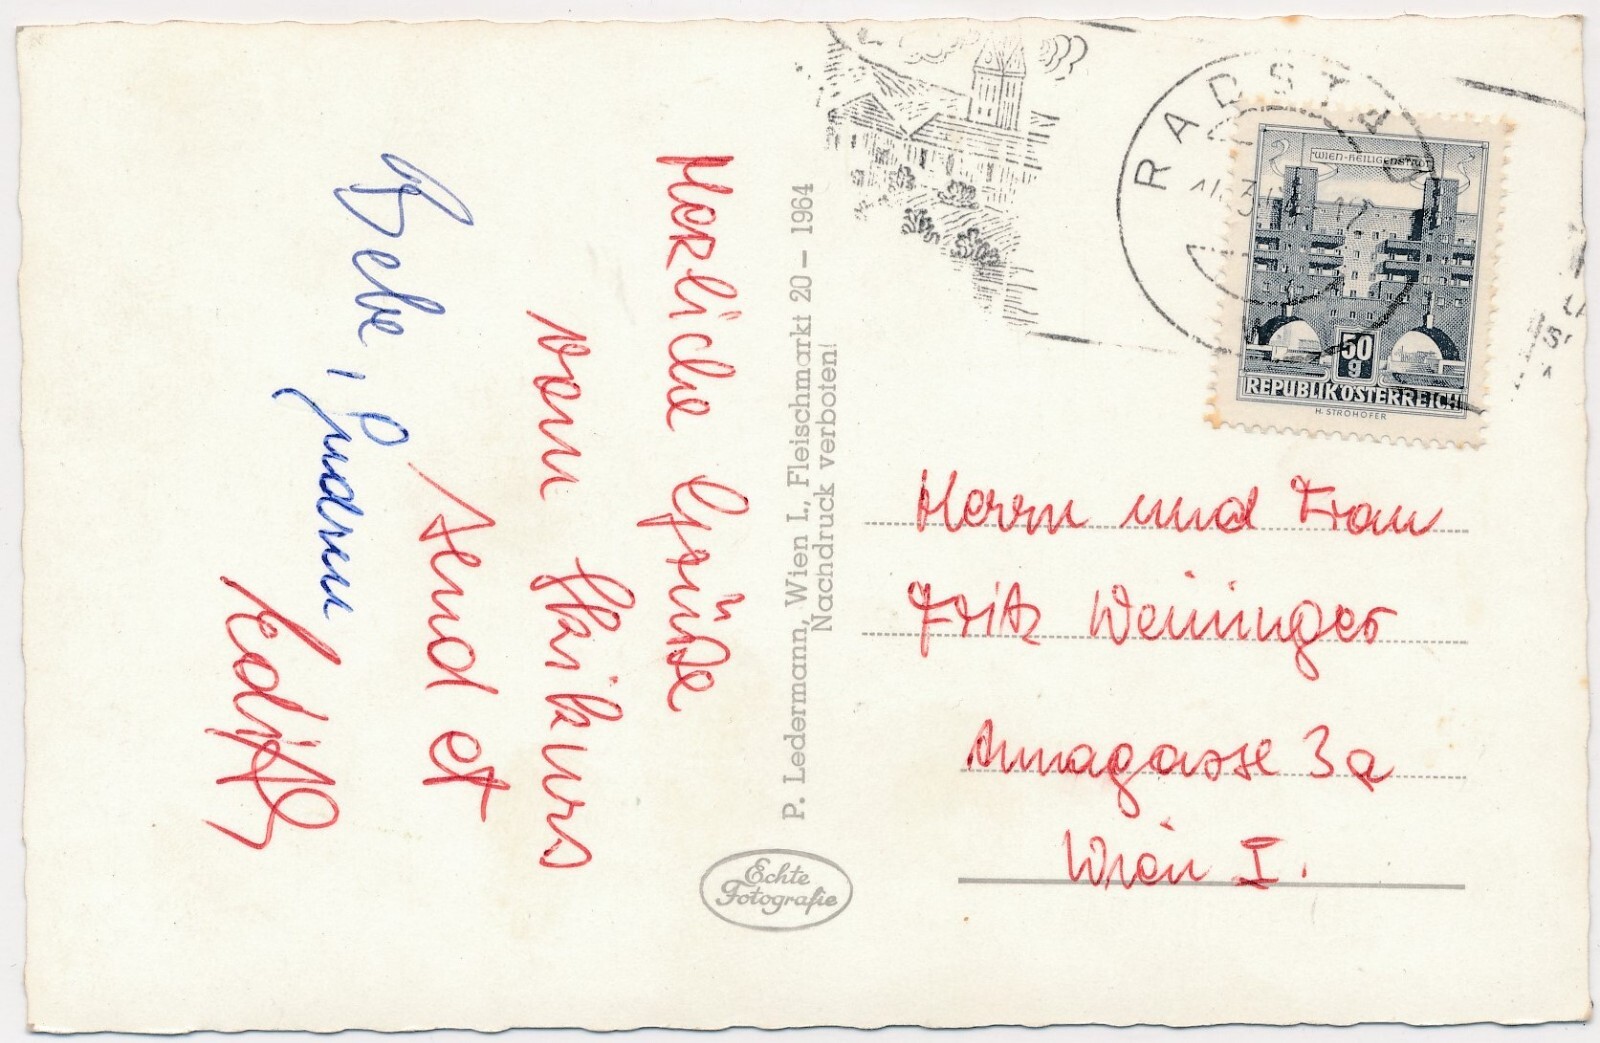 Herzliche Grüße
vom Skikurs
send et
Bebe, Gudrun
Edith
P. Ledermann, Wien I., Fleischmarkt 20 – 1964
Nachdruck verboten!
Echte
Fotografie
RADSTADT
WIEN-HEILIGENSTADT
50
g
REPUBLIK ÖSTERREICH
H. STROHOFER
Herrn und Frau
Fritz Weininger
Annagasse 3a
Wien I.